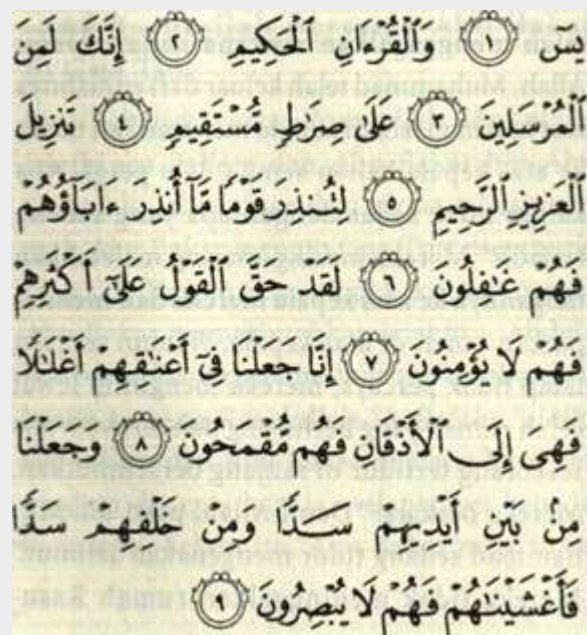 يسٓ ١ وَٱلْقُرْءَانِ ٱلْحَكِيمِ ٢ إِنَّكَ لَمِنَ
ٱلْمُرْسَلِينَ ٣ عَلَىٰ صِرَٰطٍ مُّسْتَقِيمٍ ٤ تَنزِيلَ
ٱلْعَزِيزِ ٱلرَّحِيمِ ٥ لِتُنذِرَ قَوْمًا مَّآ أُنذِرَ ءَابَآؤُهُمْ
فَهُمْ غَٰفِلُونَ ٦ لَقَدْ حَقَّ ٱلْقَوْلُ عَلَىٰٓ أَكْثَرِهِمْ
فَهُمْ لَا يُؤْمِنُونَ ٧ إِنَّا جَعَلْنَا فِىٓ أَعْنَٰقِهِمْ أَغْلَٰلًا
فَهِىَ إِلَى ٱلْأَذْقَانِ فَهُم مُّقْمَحُونَ ٨ وَجَعَلْنَا
مِنۢ بَيْنِ أَيْدِيهِمْ سَدًّا وَمِنْ خَلْفِهِمْ سَدًّا
فَأَغْشَيْنَٰهُمْ فَهُمْ لَا يُبْصِرُونَ ٩